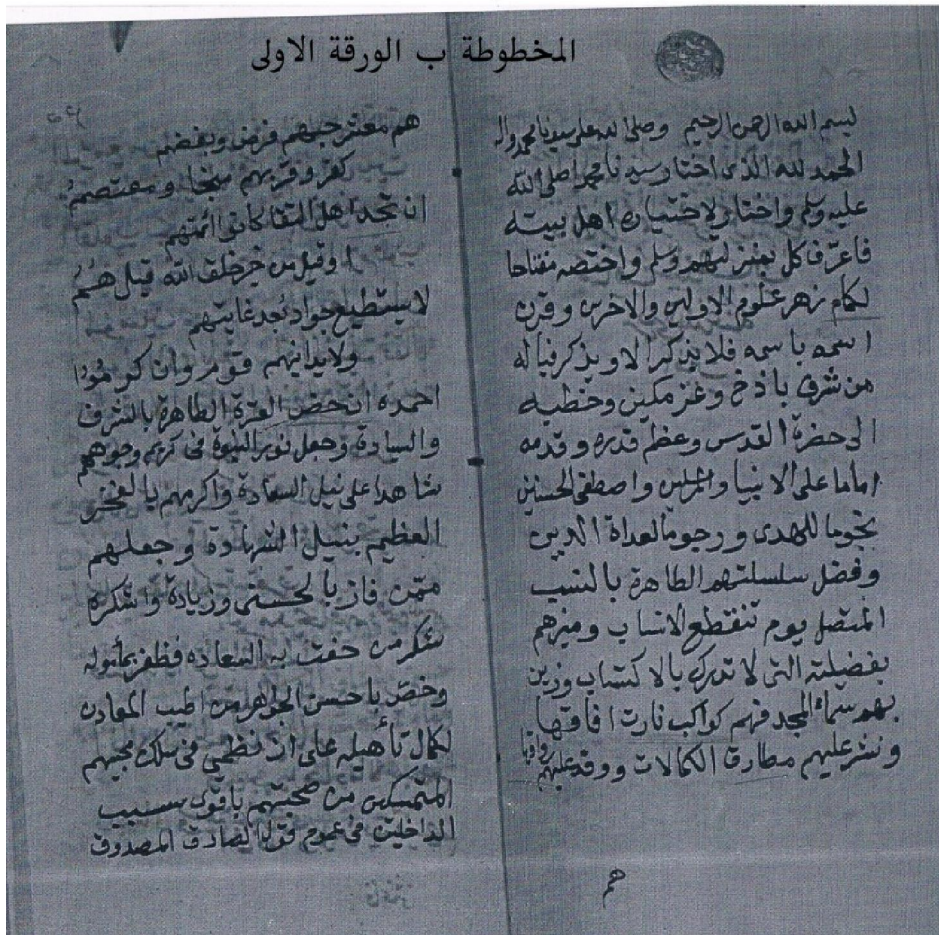 المخطوطة ب الورقة الاولى
بسم الله الرحمن الرحيم وصلى الله على سيدنا محمد واله
الحمد لله الذى اختار سيدنا محمدا صلى الله
عليه وسلم واختار لاختياره اهل بيته
فاعترف كل بفضلهم وسلم واختصه مفتاحا
لكمام زهر علوم الاولين والاخرين وقرن
اسمه باسمه فلا يذكر الا ويذكر فياله
من شرف باذخ وعز مكين وخطبه
الى حضرة القدس وعظم قدره وقدمه
اماما على الانبيا والمرسلين واصطفى الحسنين
نجوما للهدى ورجوما لعداة الدين
وفضل سلسلتهم الطاهرة بالنسب
المتصل يوم تنقطع الانساب وميزهم
بفضيلته التى لا تدرك بالاكتساب وزين
بهم سماء المجد فهم كواكب نارت افاقها
ونشر عليهم مطارق الكمالات ووقد عليهم
هم
هم معشر حبهم فرض وبغضهم
كفر وقربهم منجا ومعتصمُ
ان تجد اهل التقا كانوا ائمتهم
او قيل من خير خلق الله قيل همُ
لا يستطيع جواد بُعد غايتهم
ولا يدانيهم قوم وان كرموُا
احمده ان خص العترة الطاهرة بالشرف
والسيادة وجعل نور النبوة فى كريم وجوههم
شاهدا على نيل السعادة واكرمهم بالفخر
العظيم بنيل الشهادة وجعلهم
ممن فاز بالحسنى وزيادة واشكره
شكر من حفت به السعاده فظفر بمأموله
وخص باحسن الجواهر من اطيب المعادن
لكمال تأهيله على ان نظمنى فى سلك محبيهم
المتمسكين من صحبتهم باقوى سبب
الداخلين فى عموم قول الصادق المصدوق